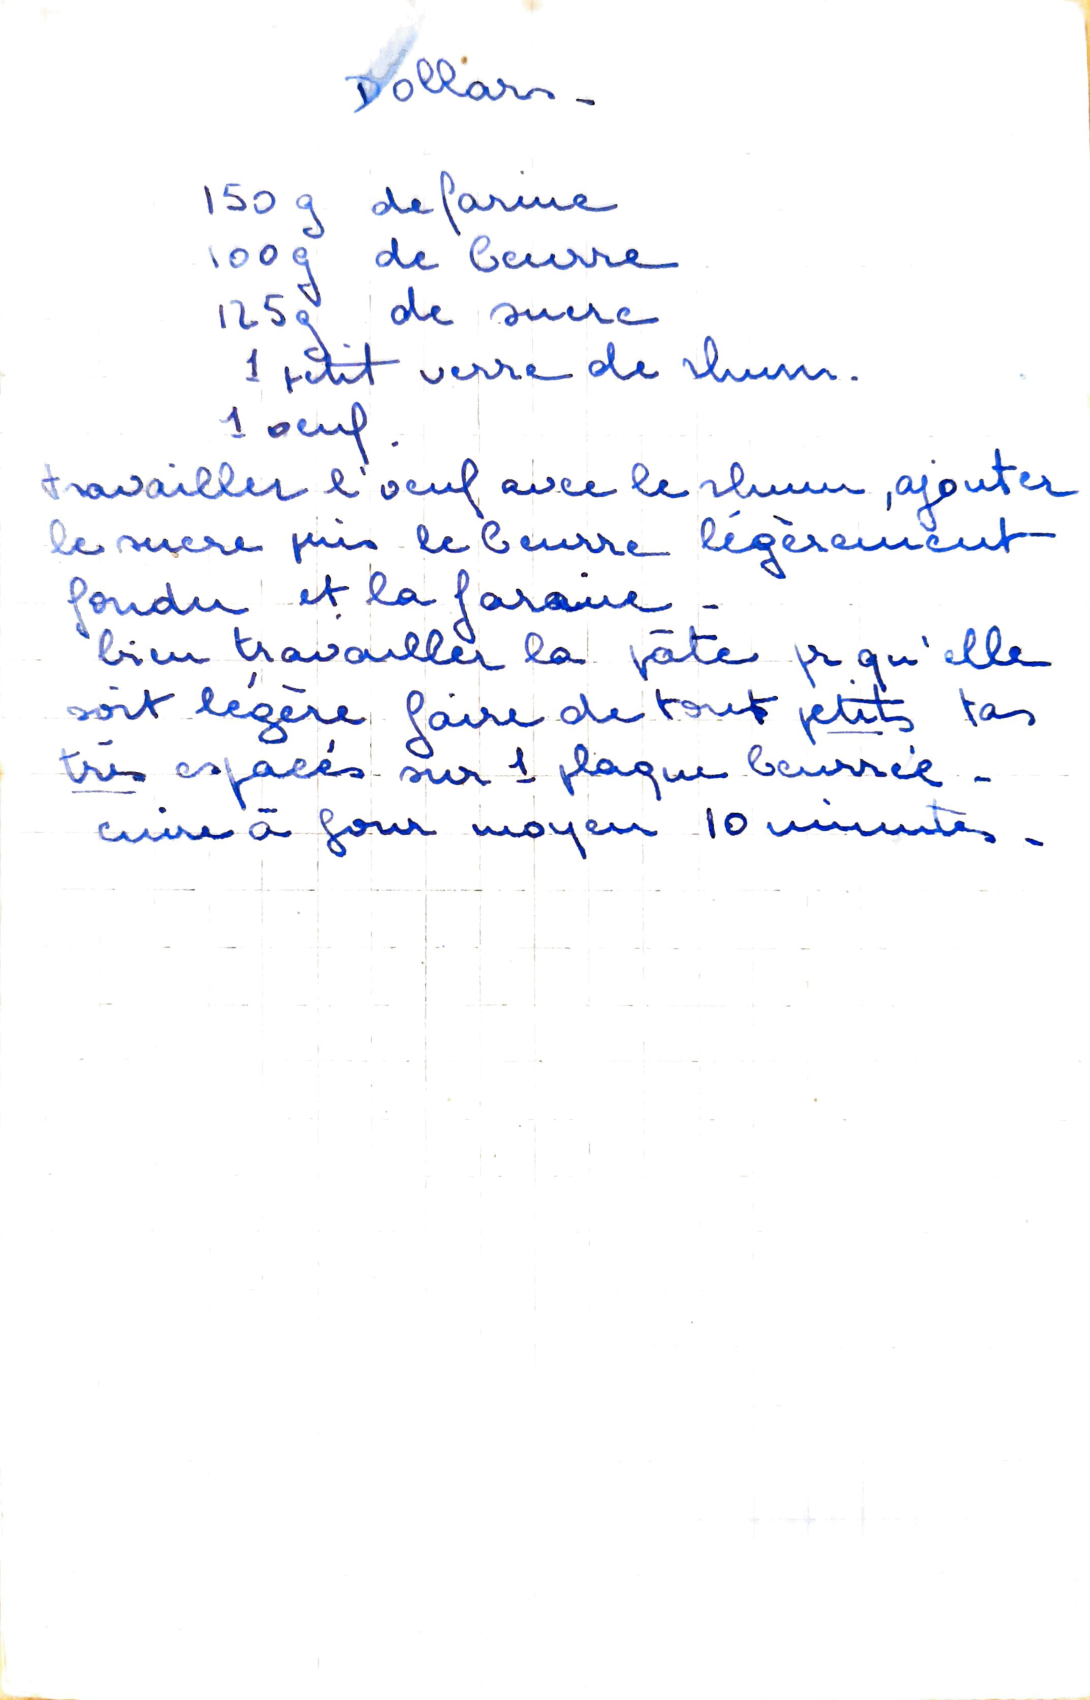 Dollars -
150 g de farine
100 g de beurre
125 g de sucre
1 petit verre de rhum.
1 oeuf.
travailler l'oeuf avec le rhum, ajouter
le sucre puis le beurre légèrement
fondu et la faraine -
bien travailler la pâte pr qu'elle
soit légère faire de tout petits tas
très espacés sur 1 plaque beurrée -
cuire à four moyen 10 minutes -